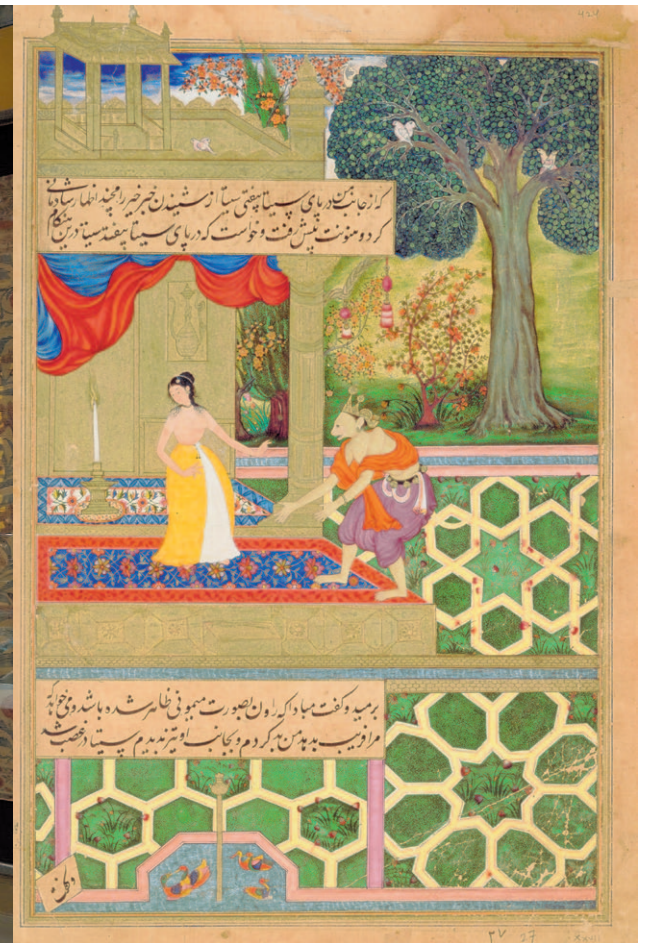 که از جانب من در پای سیتا بیفتی سیتا از شنیدن خبر خیر رامچند اظهار شادمانی
کرد و هنونت پیش رفت و خواست که در پای سیتا بیفتد سیتا درین هنگام
برمید و گفت مبادا که راون بصورت میمونی ظاهر شده باشد و می خواهد که
مرا فریب بدهد من بد کردم و بجانب او نیز ندیدم سیتا در غضب شد